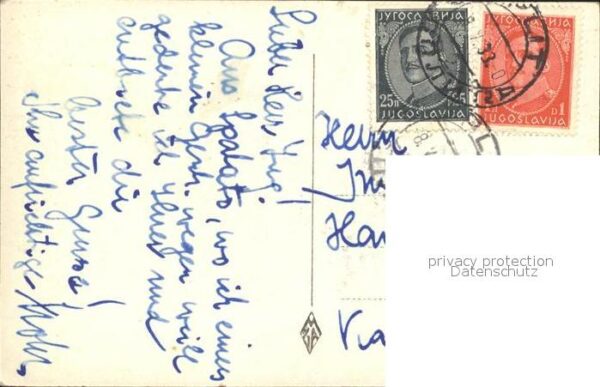 Lieber Herr Ing!
Aus Spalato, wo ich eines
kleinen Gesch. wegen weile
gedenke ich Ihrer und
entbiete die
besten Grüsse!
Ihr aufrichtiger
ЈУГОСЛАВИЈА
25п
JUGOSLAVIJA
ЈУГОСЛАВИЈА
D1
JUGOSLAVIJA
SPLIT
Herrn
Via
privacy protection
Datenschutz